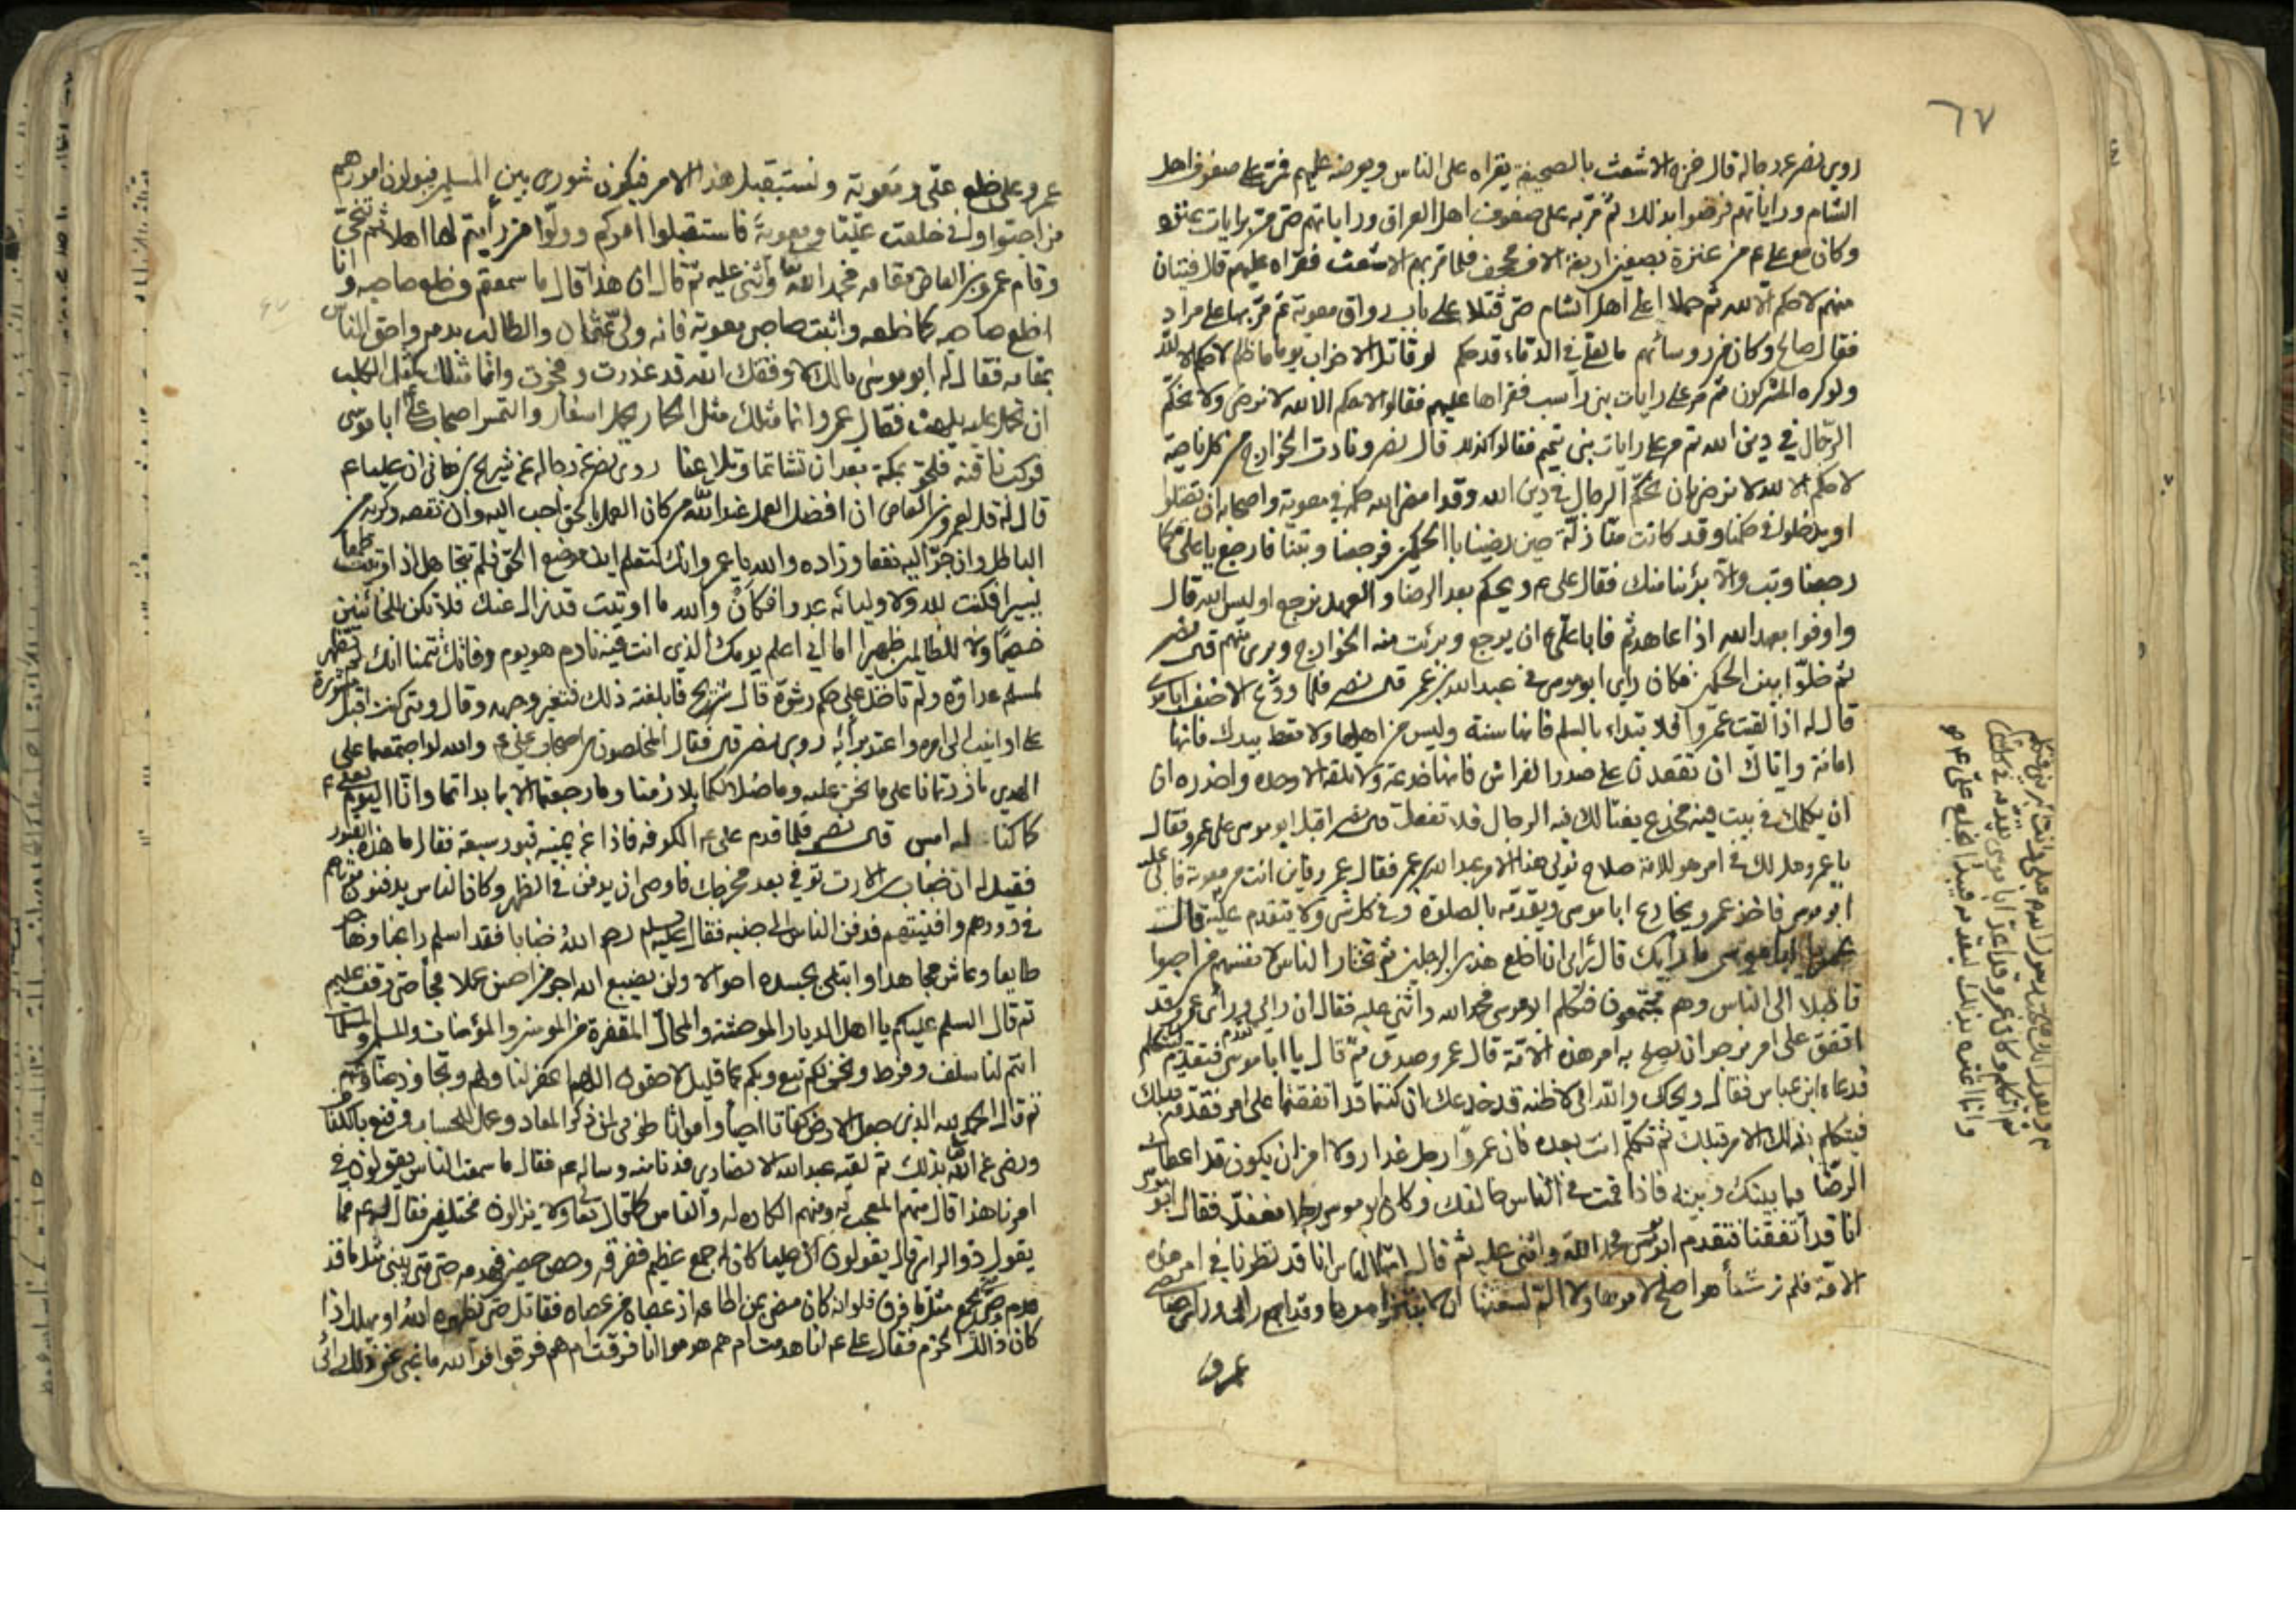 ٦٧
روى نصر عن رجاله قال خرج الاشعث بالصحيفة يقراه على الناس ويعرضه عليهم فمر على صفوف اهل
الشام وراياتهم فرضوا بذلك ثم مر به على صفوف اهل العراق وراياتهم حتى مر برايات عنزه
وكان مع على ع من عنزة بصفين اربعة الاف مجفف فلما مر بهم الاشعث فقراه عليهم قال فتيان
منهم لا حكم الا لله ثم حملا على اهل الشام حتى قتلا على باب رواق معوية ثم مر بها على مراد
فقال صالح وكان من روسائهم ما لعلى في الدماء قد حكم لو قاتل الاحزاب يوما ما ظلم لا حكم الا لله
ولو كره المشركون ثم مر على رايات بنى راسب فقراها عليهم فقالوا لا حكم الا لله لا نرضى ولا نحكم
الرجال في دين الله ثم مر على رايات بنى تميم فقالوا كذلك قال نصر ونادت الخوارج من كل ناحية
لا حكم الا لله لا نرضى بان نحكم الرجال في دين الله وقد امضى الله حكمه في معوية واصحابه ان يقتلوا
او يدخلوا في حكمنا وقد كانت منا زلة حين رضينا بالحكمين فرجعنا وتبنا فارجع يا على كما
رجعنا وتب والا برئنا منك فقال على ع ويحكم بعد الرضا والعهد نرجع اوليس الله قال
واوفوا بعهد الله اذا عاهدتم فابا على ان يرجع وبرئت منه الخوارج وبرئ منهم قال نصر
ثم خلوا بين الحكمين فكان راى ابو موسى في عبد الله بن عمر قال نصر فلما ودع الاحنف ابا موسى
قال له اذا لقيت عمروا فلا تبداء بالسلم فانها سنة وليس من اهلها ولا تعطه بيدك فانها
امانة واياك ان تقعدن على صدر الفراش فانها خدعة ولا تلقه الا وحده واحذره ان
ان يكلمك في بيت فيه مخدع يغتالك فيه الرجال فلا تفعل قال نصر اقبل ابو موسى على عمرو فقال
يا عمرو هل لك في امر هو للامة صلاح نولى هذا الامر عبد الله بن عمر فقال عمرو فاين انت من معوية فابى عليه
ابو موسى فاخذ عمرو يخادع ابا موسى ويقدمه بالصلوة وفي كل شئ ولا يتقدم عليه قال
عمرو يا ابا موسى ما رايك قال ارى ان اخلع هذين الرجلين ثم تختار الناس لانفسهم من احبوا
فاقبلا الى الناس وهم مجتمعون فتكلم ابو موسى فحمد الله واثنى عليه فقال ان رايى وراى عمرو قد
اتفق على امر نرجو ان يصلح به امر هذه الامة قال عمرو صدق ثم قال يا ابا موسى فتقدم لتتكلم
فدعاه ابن عباس فقال ويحك والله انى لاظنه قد خدعك ان كنتما قد اتفقتما على امر فقدمه قبلك
فيتكلم بذلك الامر قبلك ثم تكلم انت بعده فان عمروا رجل غدار ولا امن ان يكون قد اعطاك
الرضا فيما بينك وبينه فاذا قمت في الناس خالفك وكان ابو موسى رجلا مغفلا فقال ابو موسى
انا قد اتفقنا فتقدم ابو موسى فحمد الله واثنى عليه ثم قال ايها الناس انا قد نظرنا في امر هذه
الامة فلم نر شيئا هو اصلح لامرها ولا الم لشعثها ان لا نبتز امورها وقد اجمع رايى وراى صاحبى
عمرو
عمرو على خلع على ومعوية ونستقبل هذا الامر فيكون شورى بين المسلمين فيولون امورهم
من احبوا وانى خلعت عليا ومعوية فاستقبلوا امركم وولوا من رأيتم لها اهلا ثم تنحى
وقام عمرو بن العاص مقامه فحمد الله واثنى عليه ثم قال ان هذا قال ما سمعتم وخلع صاحبه وانا
اخلع صاحبه كما خلعه واثبت صاحبى معوية فانه ولى عثمان والطالب بدمه واحق الناس
بمقامه فقال له ابو موسى مالك لا وفقك الله قد غدرت وفجرت وانما مثلك كمثل الكلب
ان تحمل عليه يلهث فقال عمرو انما مثلك مثل الحمار يحمل اسفار والتمس اصحاب على ابا موسى
فركب ناقته فلحق بمكة بعد ان تشاتما وتلاعنا روى نصر عن رجاله عن شريح بن هانى ان عليا ع
قال له قل لعمرو بن العاص ان افضل العمل عند الله من كان العمل بالحق احب اليه وان نقصه وكرثه من
الباطل وان جر اليه نفعا وزاده والله يا عمرو انك لتعلم اين موضع الحق فلم تتجاهل اذ اوتيت طمعا
يسيرا فكنت لله ولاوليائه عدوا فكان والله ما اوتيت قد زال عنك فلا تكن للخائنين
خصيما ولا للظالمين ظهيرا اما انى اعلم يومك الذي انت فيه نادم هو يوم وفاتك تتمنا انك لم تظهر
لمسلم عداوة ولم تاخذ على حكم رشوة قال شريح فابلغته ذلك فتغير وجهه وقال ومتى كنت اقبل مشورة
على او انيب الى امره واعتد برأيه روى نصر قال فقال المخلصون من اصحاب على ع والله لو اجتمعتما على
الهدى ما زدتمانا على ما نحن عليه وما ضلالكما بلازمنا وما رجعتما الا بما بداتما وانا اليوم لعلى ع
كما كنا له امس قال نصر فلما قدم على ع الكوفه فاذا عن يمينه قبور سبعة فقال ما هذه القبور
فقيل له ان خباب بن الارت توفي بعد مخرجك فاوصى ان يدفن في الظهر وكان الناس يدفنون موتاهم
في دورهم وافنيتهم فدفن الناس الى جنبه فقال عليه السلم رحم الله خبابا فقد اسلم راغبا وهاجر
طايعا وعاش مجاهدا وابتلى بجسده احوالا ولن يضيع الله اجر من احسن عملا فجا حتى وقف عليهم
ثم قال السلم عليكم يا اهل الديار الموحشة والمحال المقفرة من المومنين والمؤمنات والمسلمين والمسلمات
انتم لنا سلف وفرط ونحن لكم تبع وبكم عما قليل لاحقون اللهم اغفر لنا ولهم وتجاوز عنا وعنهم
ثم قال الحمد لله الذى جعل الارض كفاتا احياء وامواتا طوبى لمن ذكر المعاد وعمل للحساب وقنع بالكفاف
ورضى عن الله بذلك ثم لقيه عبد الله الانصارى فدنا منه وساله ع فقال ما سمعت الناس يقولون في
امرنا هذا قال منهم المعجب به ومنهم الكاره له والناس كما قال تعا ولا يزالون مختلفين فقال له ع فما
يقول ذوا الراى قال يقولون ان عليا كان له جمع عظيم ففرقه وحصن حصين فهدمه حتى متى يبنى مثل ما قد
هدم وحتى يجمع مثل ما فرق فلو انه كان مضى بمن اطاعه اذ عصاه من عصاه فقاتل حتى يظهره الله او يهلك اذا
كان ذالك الحزم فقال على ع انا هدمت ام هم هدموا انا فرقت ام هم فرقوا فو الله ما غبى عنى ذلك الراى